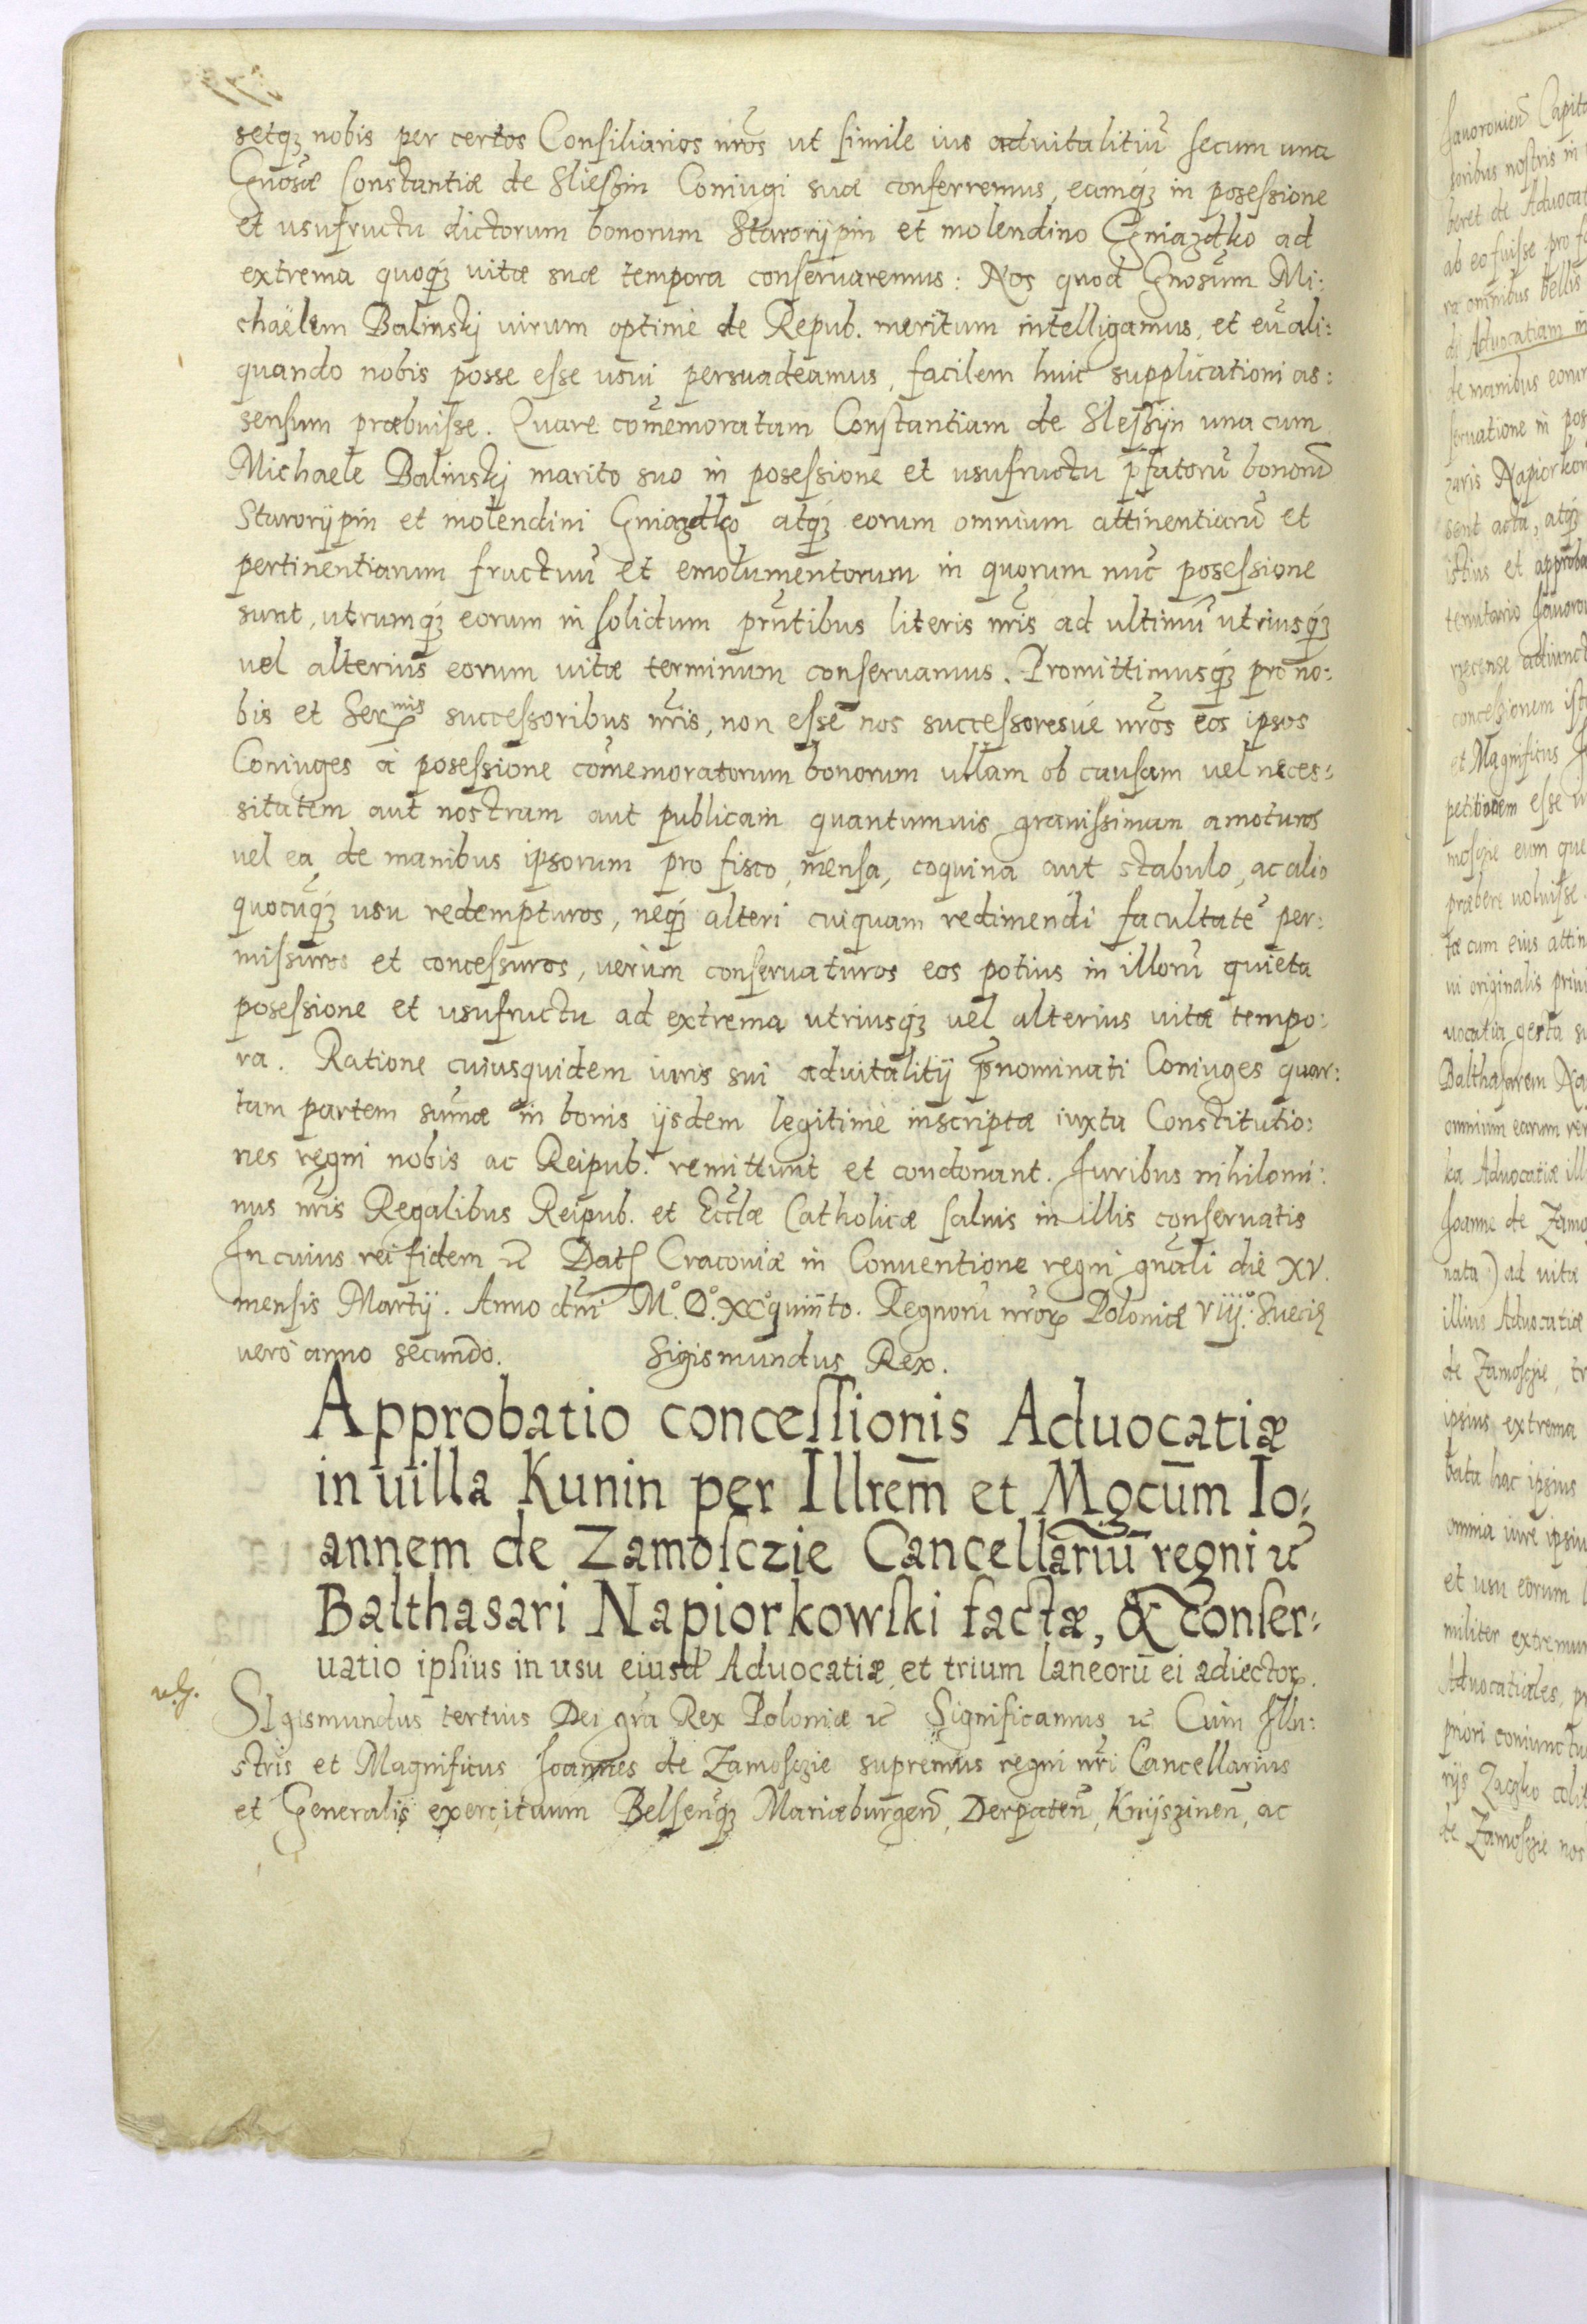 setq₃ nobis per certos Consiliarios nr̃os ut simile ius aduitalitiũ secum una
Gnosæ Constantiæ de Sliesßin Coniugi suæ conferremus, eamq₃ in posessione
et usufructu dictorum bonorum Starorÿpin et molendino Gniazdko ad
extrema quoq₃ uitæ suæ tempora conseruaremus: Nos quod Gnosum Mi:
chaëlem Balinskj uirum optimè de Repub. meritum intelligamus, et eũ ali:
quando nobis posse esse usui persuadeamus, facilem huic supplicationi as:
sensum præbuisse. Quare com̃emoratam Constantiam de Slesßÿn una cum
Michaele Balinskj marito suo in posessione et usufructu p̃fatorũ bonorũ
Starorÿpin et molendini Gniazdko atq₃ eorum omnium attinentiarũ et
pertinentiarum fructuũ et emolumentorum in quorum nũc posessione
sunt, utrumq₃ eorum in solidum prñtibus literis nr̃is ad ultimũ utriusq₃
uel alterius eorum uitæ terminum conseruamus. Promittimusq₃ pro no:
bis et Ser^mis successoribus nr̃is, non esse nos successoresué nr̃os eos ipsos
Coniuges à posessione com̃emoratorum bonorum ullam ob causam uel neces:
sitatem aut nostram aut publicam quantumuis grauissimam amoturos
uel ea de manibus ipsorum pro fisco, mensa, coquina aut stabulo, ac alio
quocũq₃ usu redempturos, neq₃ alteri cuiquam redimendi facultatẽ per:
missuros et concessuros, uerùm conseruaturos eos potius in illorũ quieta
posessione et usufructu ad extrema utriusq₃ uel alterius uitæ tempo:
ra. Ratione cuiusquidem iuris sui aduitalitÿ p̃nominati Coniuges quar:
tam partem sum̃æ in bonis ÿsdem legitimè inscriptæ iuxta Constitutio:
nes regni nobis ac Reipub. remittunt et condonant. Juribus nihilomi:
nus nr̃is Regalibus Reipub. et Eccl̃æ Catholicæ saluis in illis conseruatis
In cuius rei fidem ꝛc̃ Datſ Cracouiæ in Conuentione regni gnãli die XV.
mensis Martÿ. Anno dñi M°. D°. XC° quinto. Regnorũ nr̃oꝝ Poloniæ Viij°. Sueciæ
uerò anno secundo. Sigismundus Rex.
Approbatio concessionis Aduocatiæ
in uilla Kunin per Illrem̃ et Mgcũm Io:
annem de Zamosczie Cancellariũ regni ꝛc̃
Balthasari Napiorkowski factæ, & conser:
uatio ipsius in usu eiusd̃ Aduocatiæ et trium laneorũ ei adiectoꝝ.
SIgismundus tertius Dei grã Rex Poloniæ ꝛc̃ Significamus ꝛc̃ Cum Illu:
stris et Magnificus Joannes de Zamosczie supremus regni nr̃i Cancellarius
et Generalis exercituum Belsenq̃₃ Mariæburgeñ, Derpateñ, Knÿszineñ, ac